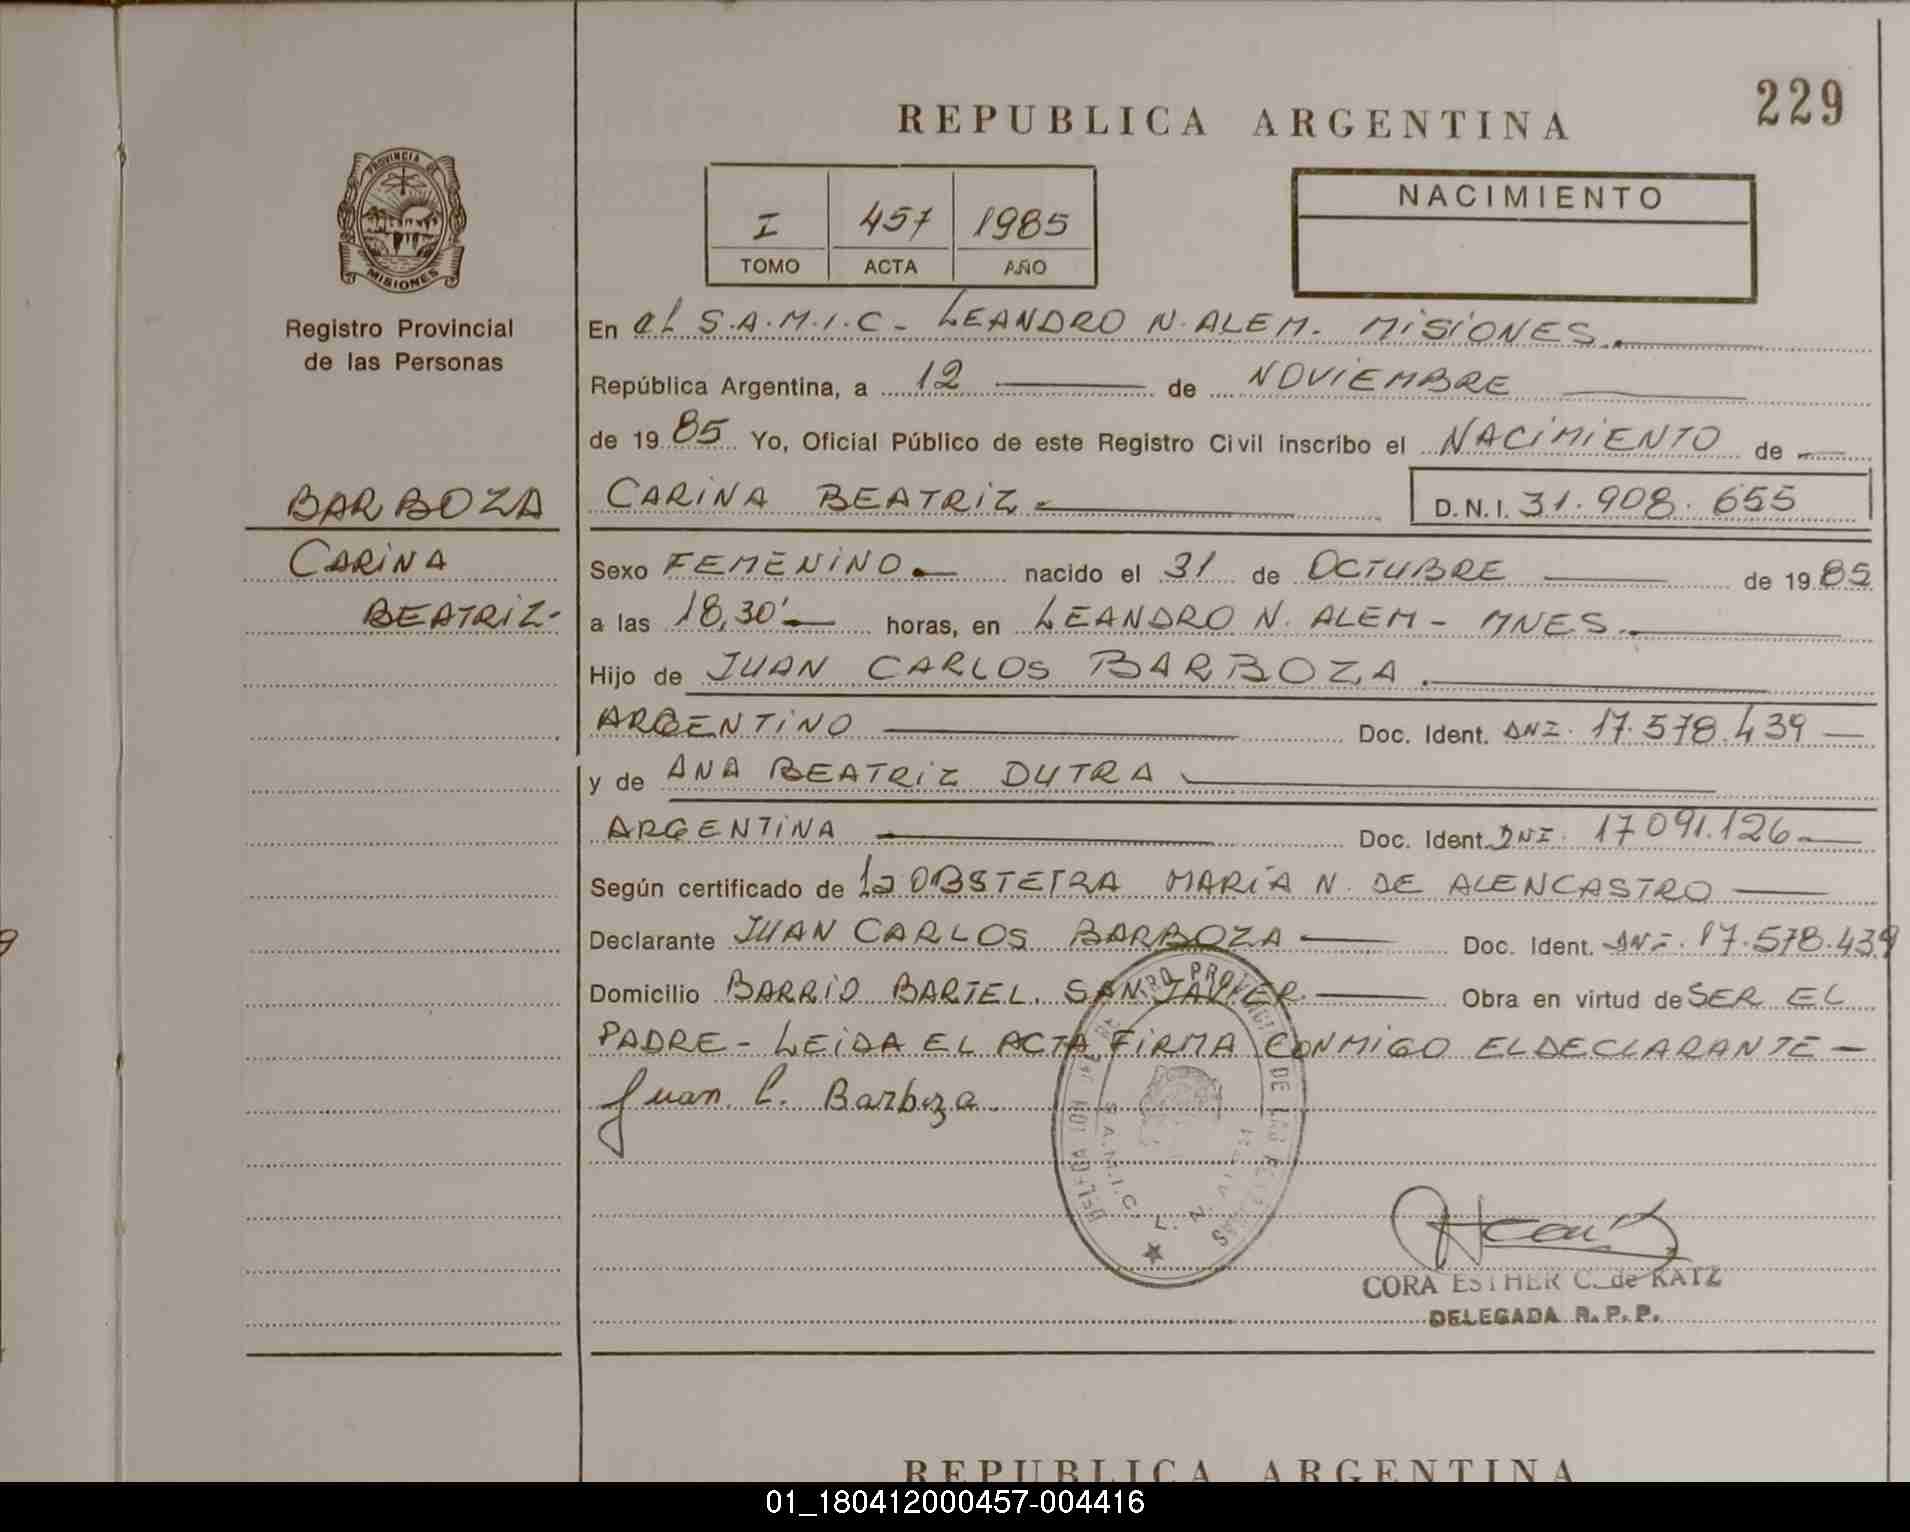 229
REPUBLICA ARGENTINA
PROVINCIA DE
MISIONES
Registro Provincial
de las Personas
I 457 1985
TOMO ACTA AÑO
NACIMIENTO
En el S.A.M.I.C - LEANDRO N. ALEM. MISIONES.
República Argentina, a 12 de NOVIEMBRE
de 1985 Yo, Oficial Público de este Registro Civil inscribo el NACIMIENTO de
BARBOZA CARINA BEATRIZ D.N.I. 31.908.655
CARINA Sexo FEMENINO. nacido el 31 de OCTUBRE de 1985
BEATRIZ- a las 18,30' horas, en LEANDRO N. ALEM - MNES.
Hijo de JUAN CARLOS BARBOZA.
ARGENTINO Doc. Ident. DNI. 17.578.439
y de ANA BEATRIZ DUTRA
ARGENTINA Doc. Ident. DNI. 17091.126
Según certificado de la OBSTETRA MARÍA N. DE ALENCASTRO
Declarante JUAN CARLOS BARBOZA Doc. Ident. DNI. 17.578.439
Domicilio BARRIO BARTEL. SAN JAVIER Obra en virtud de SER EL
PADRE - LEIDA EL ACTA FIRMA CONMIGO EL DECLARANTE -
Juan C. Barboza
S.A.M.I.C. L. N.
CORA ESTHER C. de KATZ
DELEGADA R.P.P.
REPUBLICA ARGENTINA
01_180412000457-004416